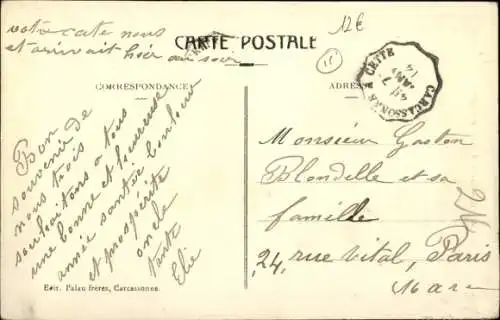 votre carte nous
et arrivait hier au soir
12€
CARTE POSTALE
11
CORRESPONDANCE
ADRESSE
CETTE
CARCASSONNE
7
JANV
14
Bon
souvenir de
nous trois
souhaitons a tous
une bonne et heureuse
année santée bonheur
et prospérité
oncle
tante
Elie
Monsieur Gaston
Blondelle et sa
famille
24, rue Vital, Paris
16 arr
Edit. Palau frères, Carcassonne.